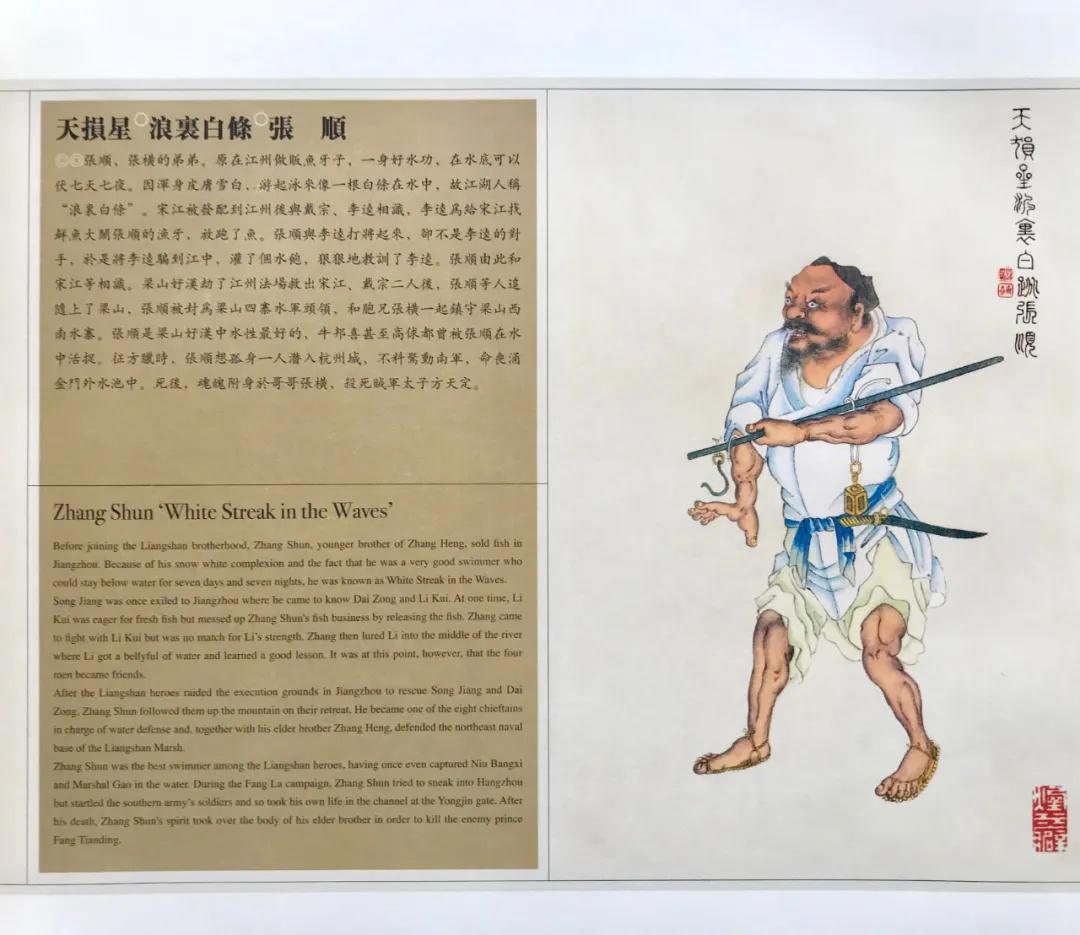 天損星 浪裏白條 張 順
張順、張横的弟弟。原在江州做販魚牙子，一身好水功，在水底可以
伏七天七夜。因渾身皮膚雪白，游起泳來像一根白條在水中，故江湖人稱
“浪裏白條”。宋江被發配到江州後與戴宗、李逵相識，李逵爲給宋江找
鮮魚大鬧張順的漁牙，放跑了魚。張順與李逵打將起來，卻不是李逵的對
手，於是將李逵騙到江中，灌了個水飽，狠狠地教訓了李逵。張順由此和
宋江等相識。梁山好漢劫了江州法場救出宋江、戴宗二人後，張順等人追
隨上了梁山，張順被封爲梁山四寨水軍頭領，和胞兄張横一起鎮守梁山西
南水寨。張順是梁山好漢中水性最好的，牛邦喜甚至高俅都曾被張順在水
中活捉。征方臘時，張順想孤身一人潜入杭州城，不料驚動南軍，命喪涌
金門外水池中。死後，魂魄附身於哥哥張横，殺死賊軍太子方天定。
Zhang Shun ‘White Streak in the Waves’
Before joining the Liangshan brotherhood, Zhang Shun, younger brother of Zhang Heng, sold fish in
Jiangzhou. Because of his snow white complexion and the fact that he was a very good swimmer who
could stay below water for seven days and seven nights, he was known as White Streak in the Waves.
Song Jiang was once exiled to Jiangzhou where he came to know Dai Zong and Li Kui. At one time, Li
Kui was eager for fresh fish but messed up Zhang Shun's fish business by releasing the fish. Zhang came
to fight with Li Kui but was no match for Li's strength. Zhang then lured Li into the middle of the river
where Li got a bellyful of water and learned a good lesson. It was at this point, however, that the four
men became friends.
After the Liangshan heroes raided the execution grounds in Jiangzhou to rescue Song Jiang and Dai
Zong, Zhang Shun followed them up the mountain on their retreat. He became one of the eight chieftains
in charge of water defense and, together with his elder brother Zhang Heng, defended the northeast naval
base of the Liangshan Marsh.
Zhang Shun was the best swimmer among the Liangshan heroes, having once even captured Niu Bangxi
and Marshal Gao in the water. During the Fang La campaign, Zhang Shun tried to sneak into Hangzhou
but startled the southern army's soldiers and so took his own life in the channel at the Yongjin gate. After
his death, Zhang Shun's spirit took over the body of his elder brother in order to kill the enemy prince
Fang Tianding.
天損星浪裏白跳張順